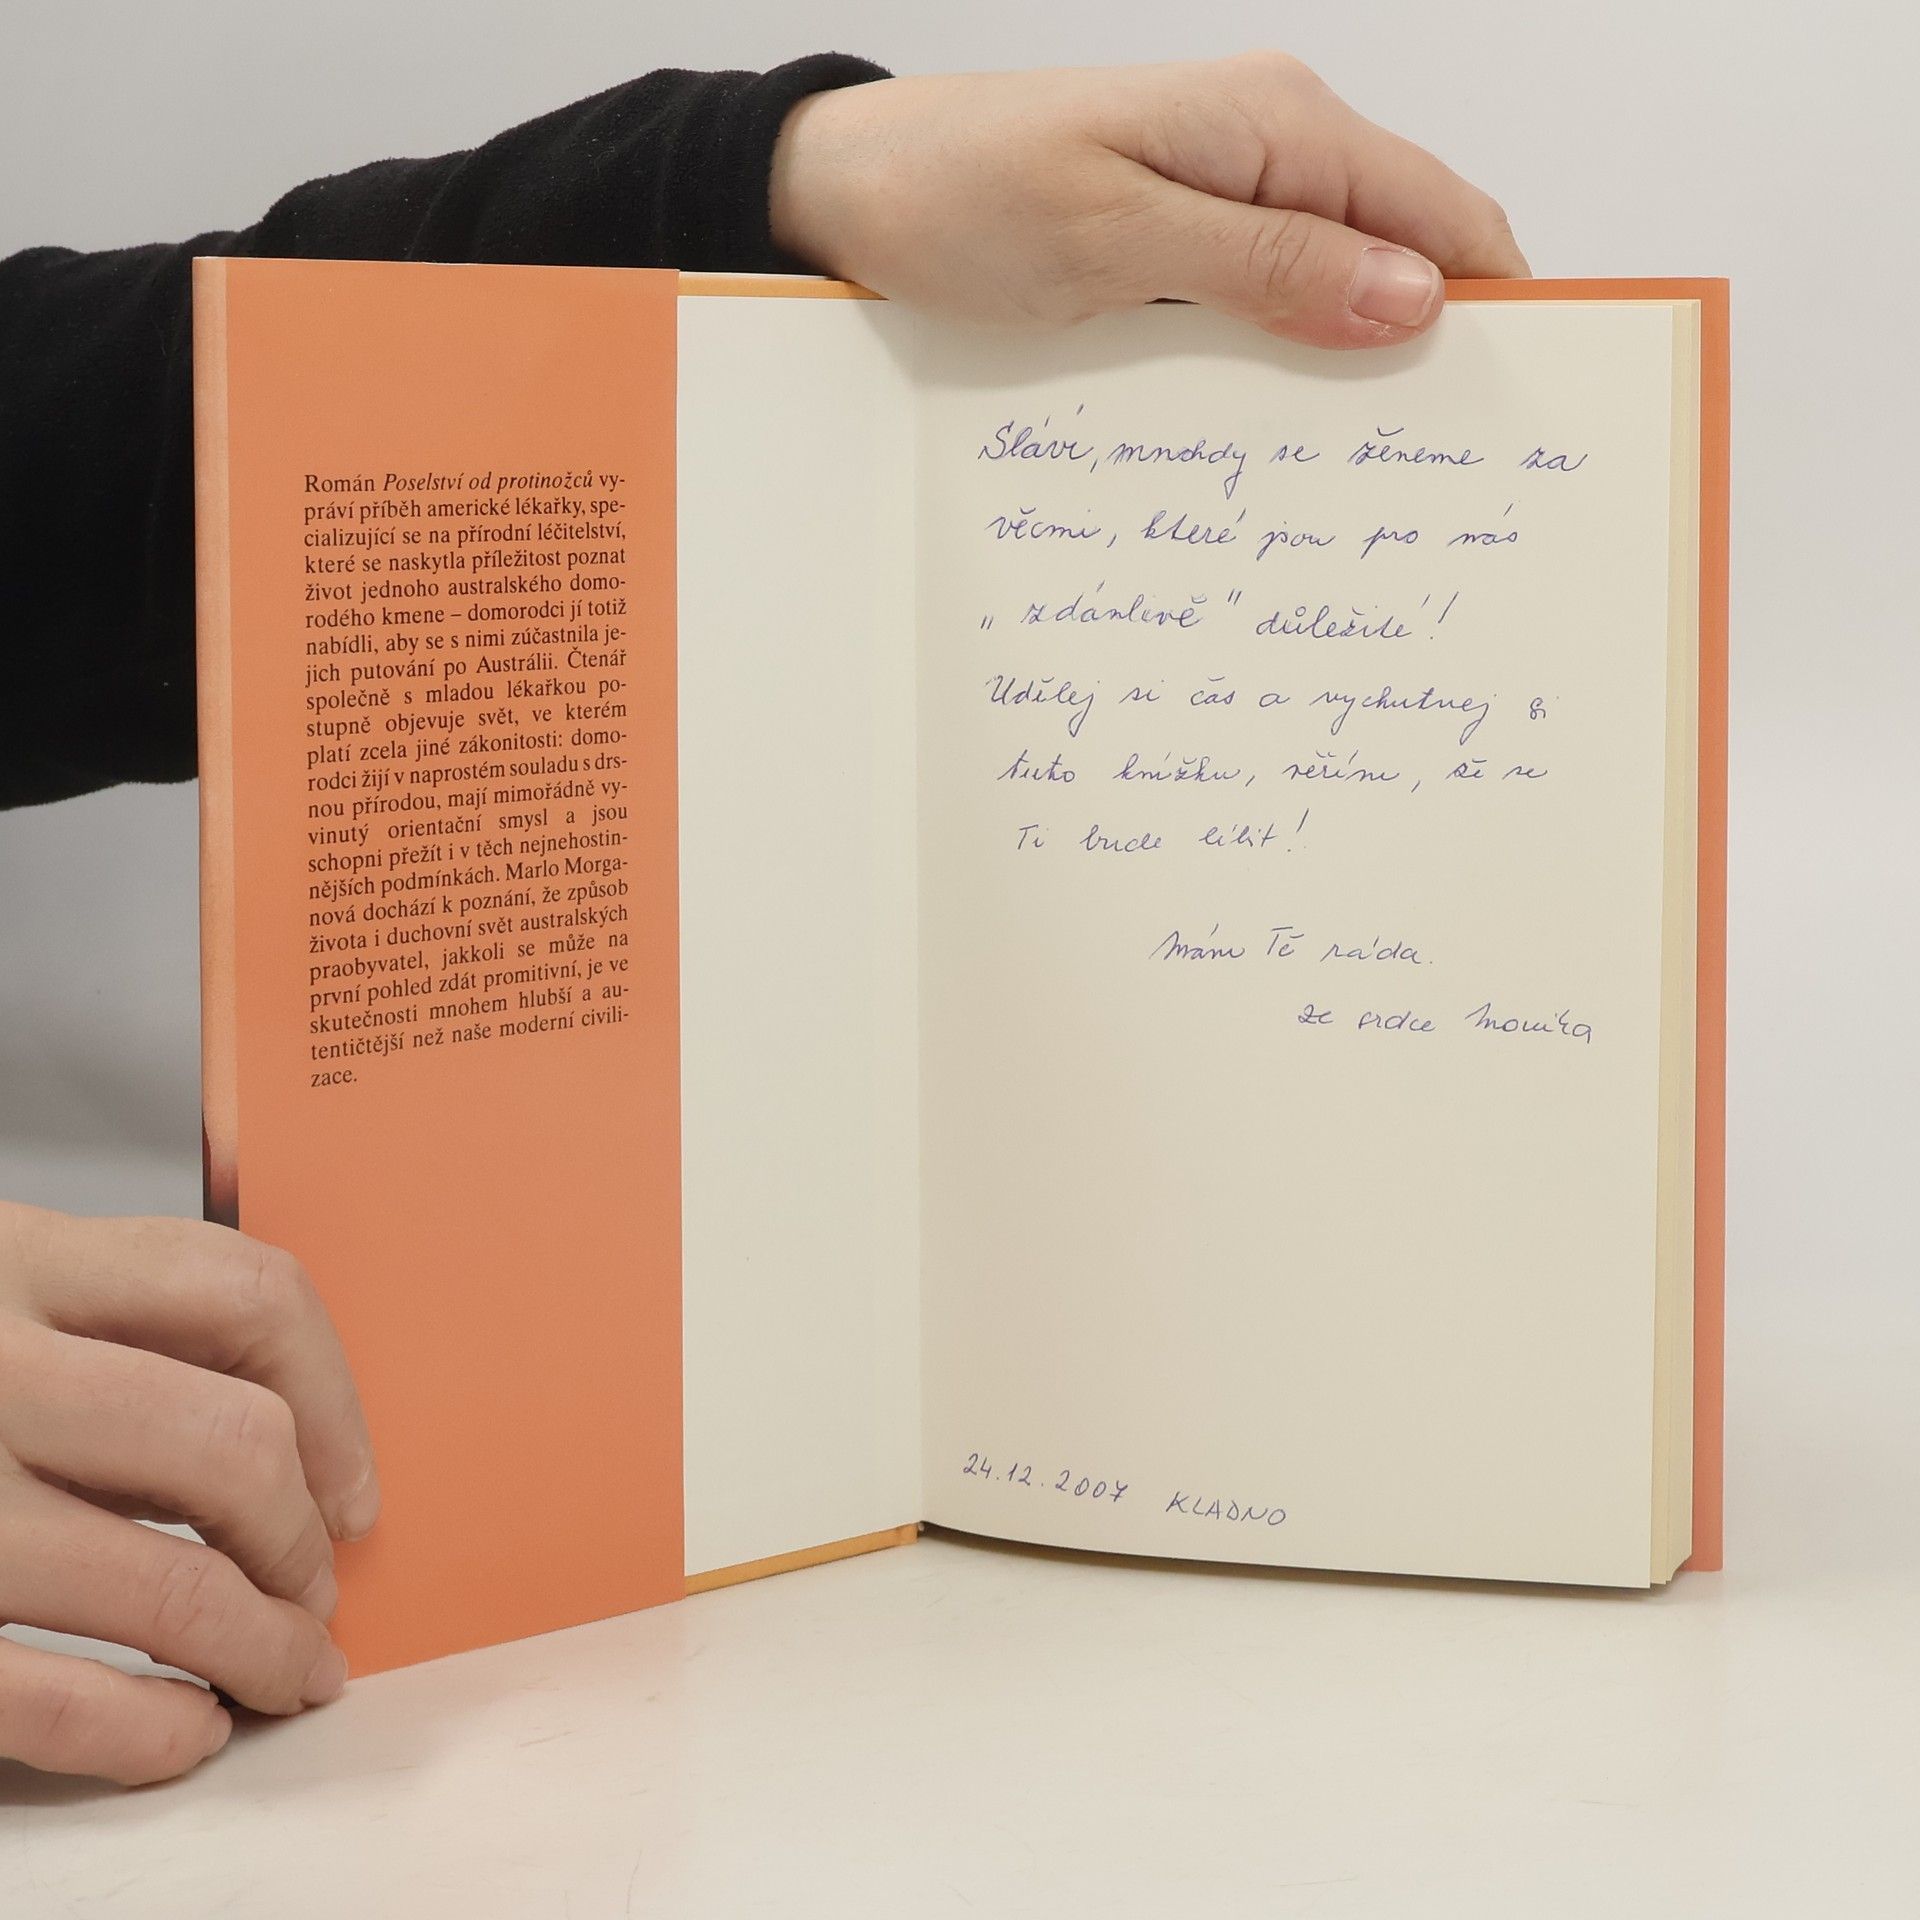 Román Poselství od protinožců vy-
práví příběh americké lékařky, spe-
cializující se na přírodní léčitelství,
které se naskytla příležitost poznat
život jednoho australského domo-
rodého kmene – domorodci jí totiž
nabídli, aby se s nimi zúčastnila je-
jich putování po Austrálii. Čtenář
společně s mladou lékařkou po-
stupně objevuje svět, ve kterém
platí zcela jiné zákonitosti: domo-
rodci žijí v naprostém souladu s drs-
nou přírodou, mají mimořádně vy-
vinutý orientační smysl a jsou
schopni přežít i v těch nejnehostin-
nějších podmínkách. Marlo Morga-
nová dochází k poznání, že způsob
života i duchovní svět australských
praobyvatel, jakkoli se může na
první pohled zdát promitivní, je ve
skutečnosti mnohem hlubší a au-
tentičtější než naše moderní civili-
zace.
Slávi, mnohdy se ženeme za
věcmi, které jsou pro nás
„zdánlivě" důležité!
Udělej si čas a vychutnej si
tuto knížku, věřím, že se
Ti bude líbit!
Mám Tě ráda.
ze srdce Monika
24.12.2007 KLADNO